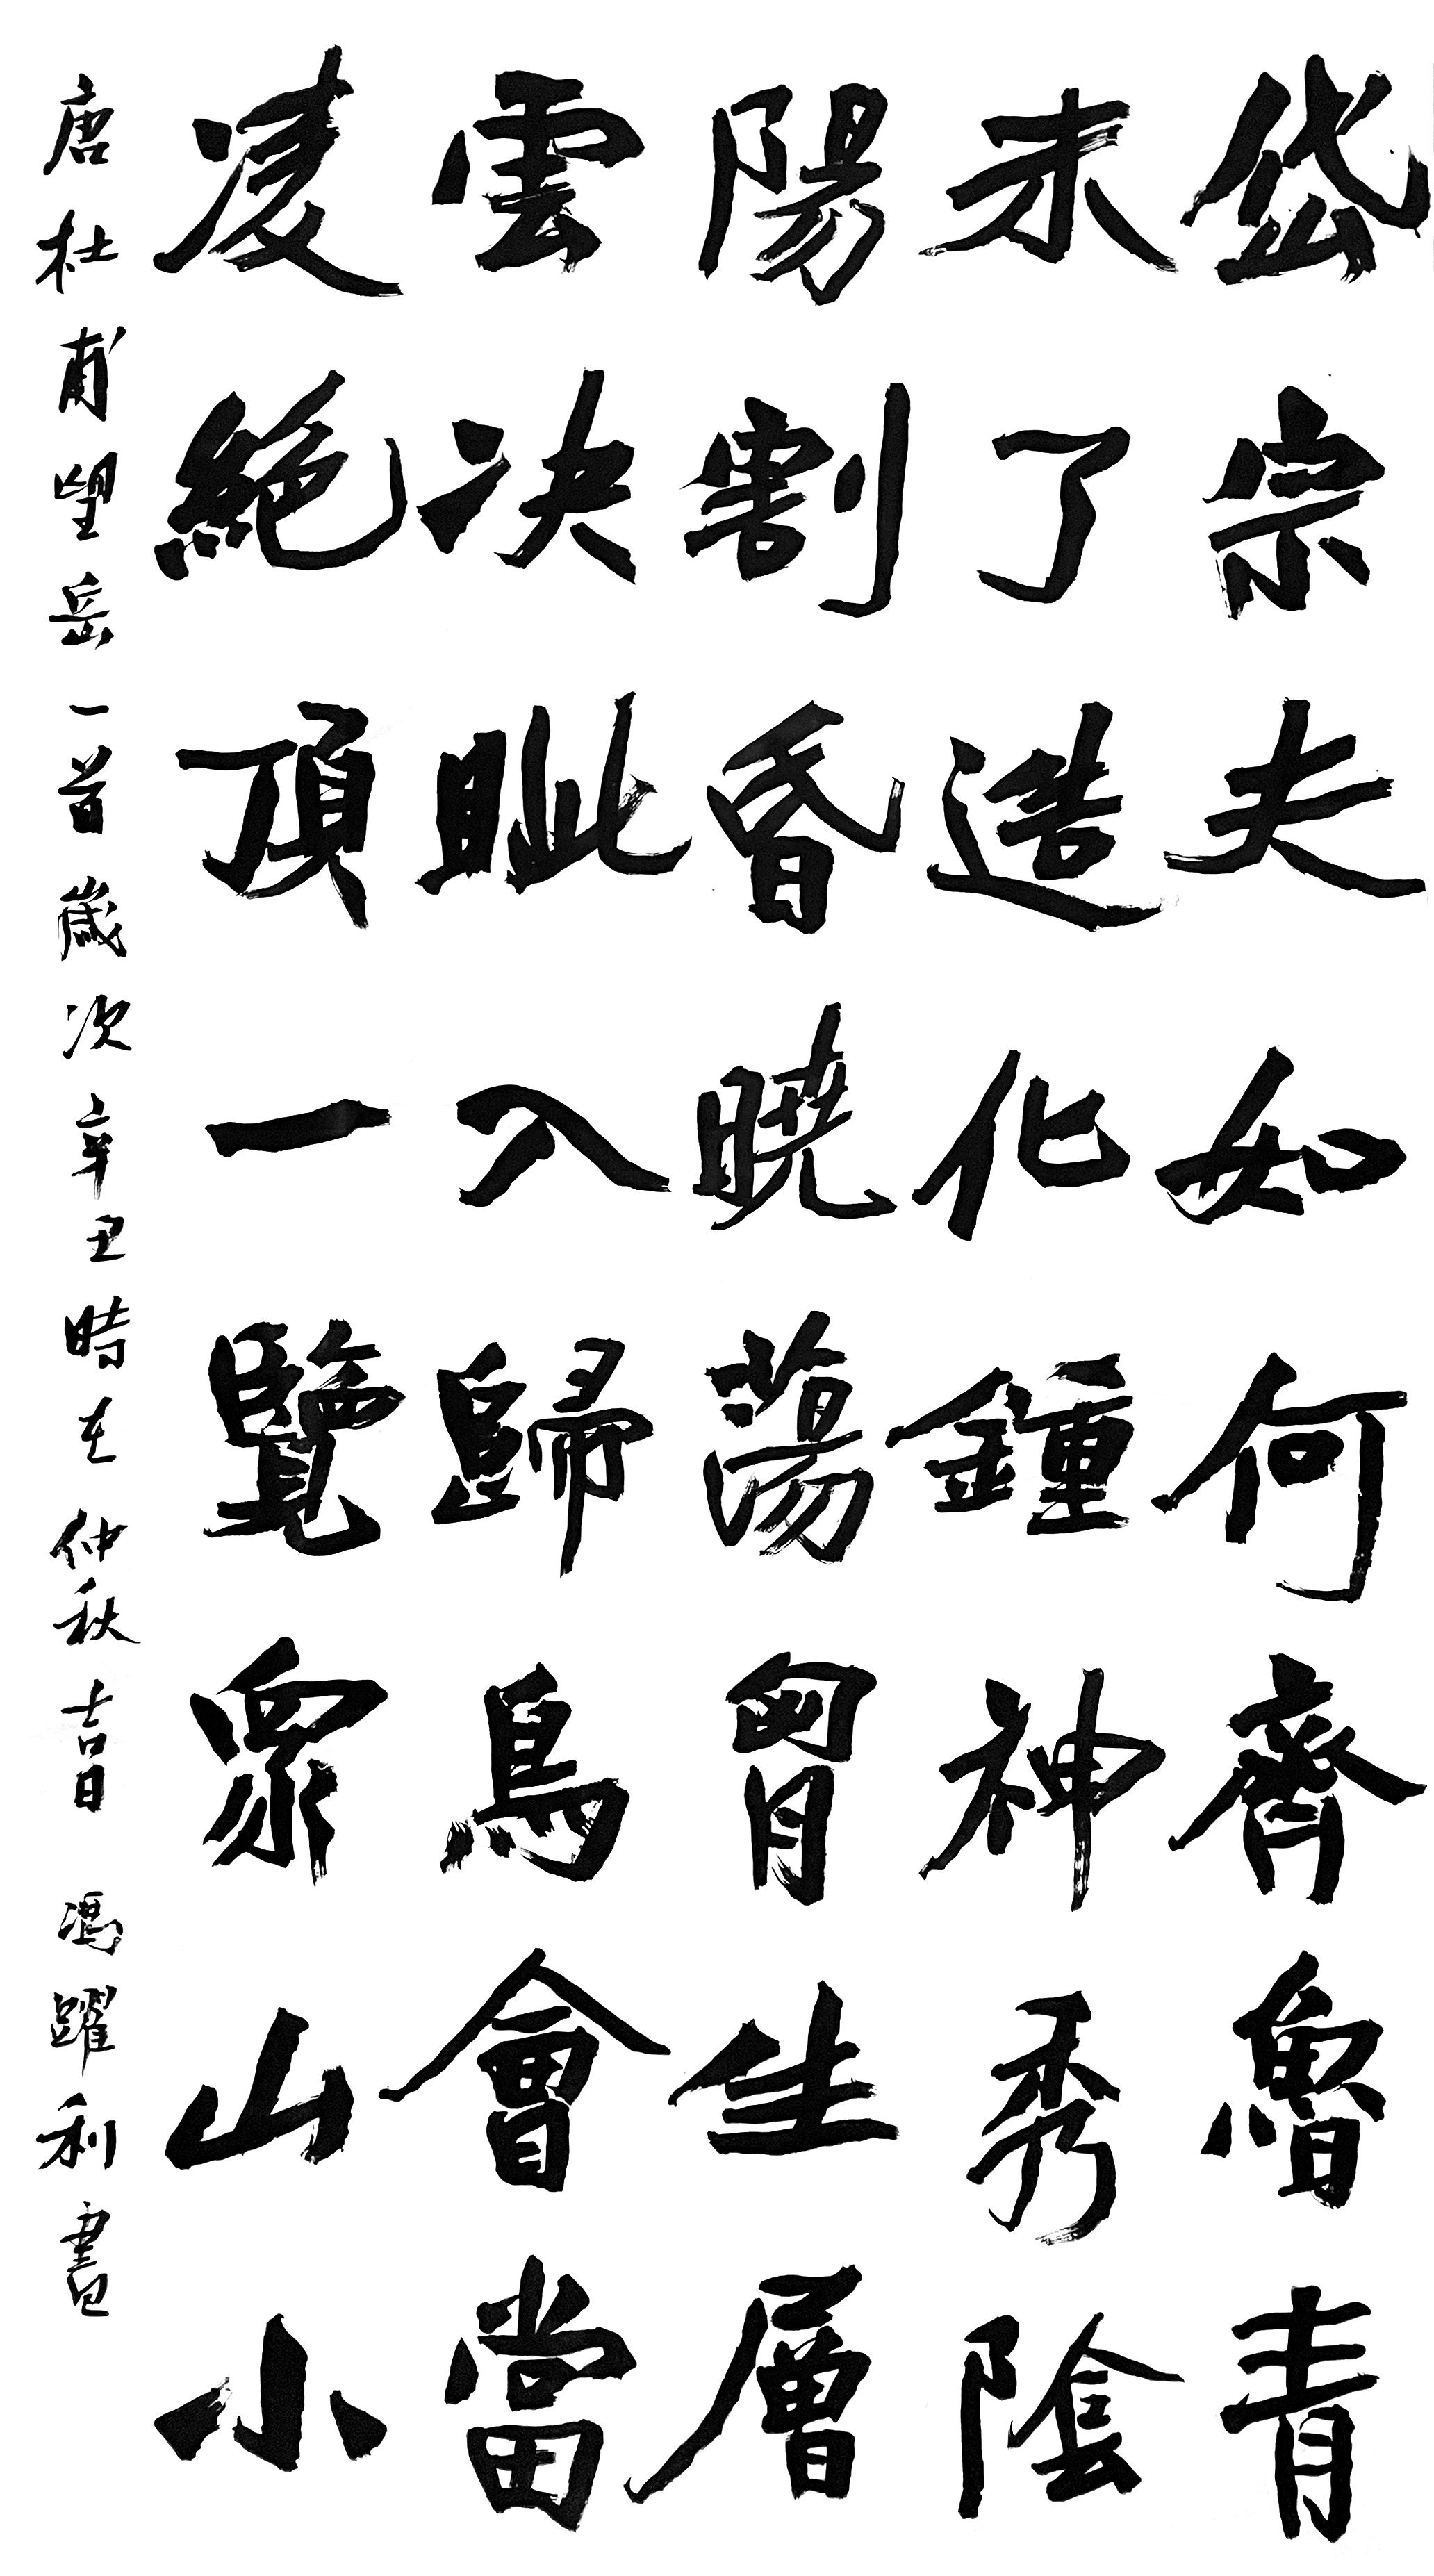 岱宗夫如何齊魯青
未了造化鍾神秀陰
陽割昏曉蕩胷生層
雲决眦入歸鳥會當
凌絕頂一覽眾山小
唐杜甫望岳一首歲次辛丑時在仲秋吉日馮躍利書